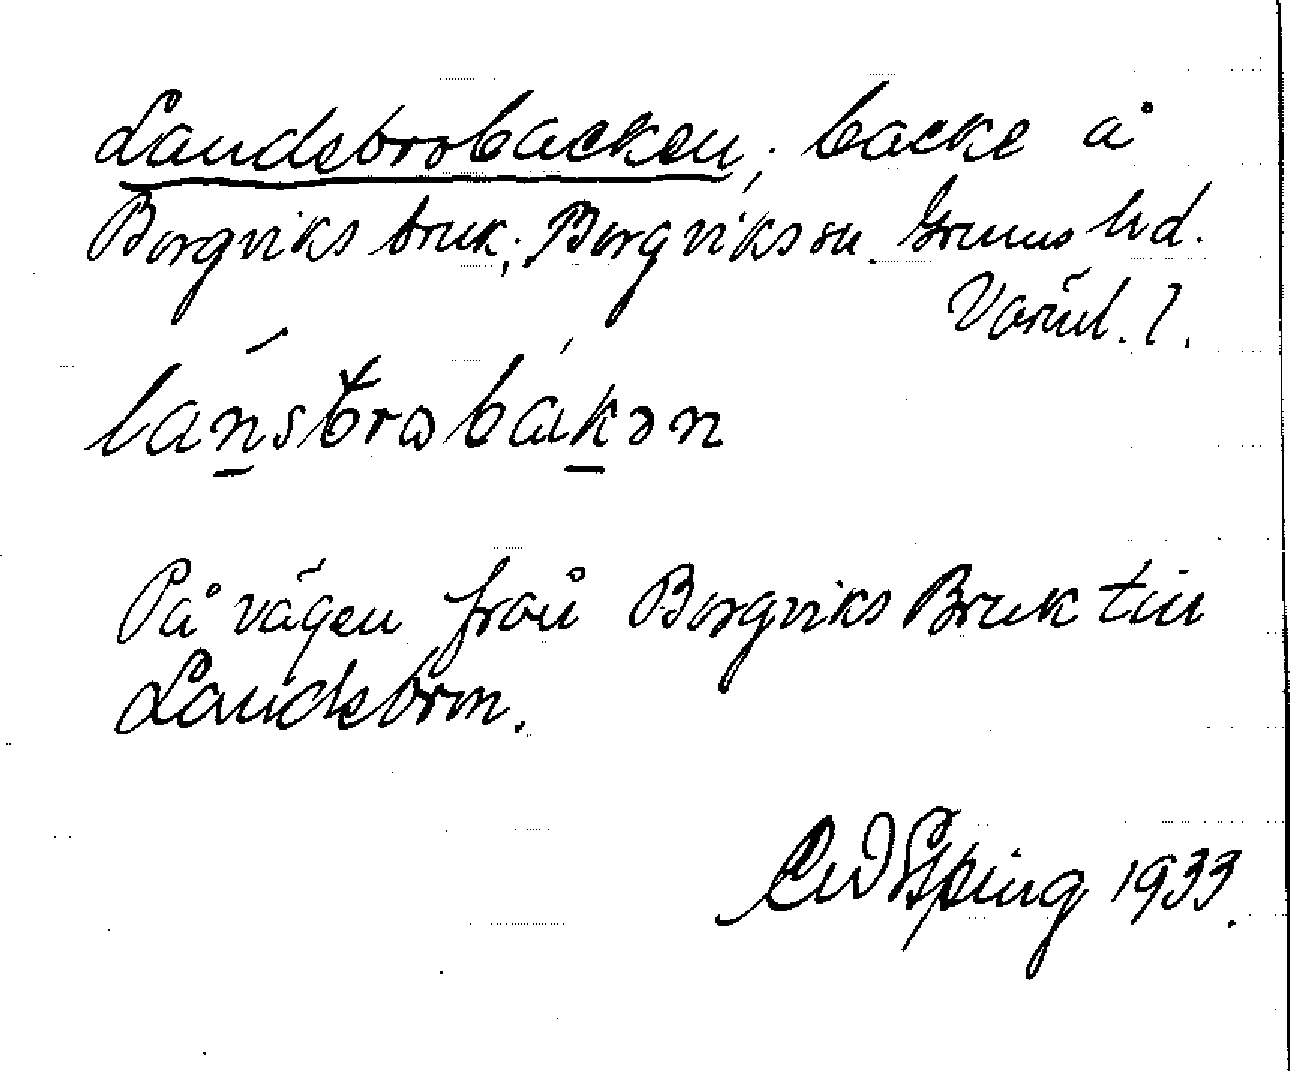 Landsbrobacken; backe å
Borgviks bruk; Borgviks sn. Grums hd.
Värml. l.
lánsbrobákən
På vägen från Borgviks Bruk till
Landsbron.
Spring 1933.